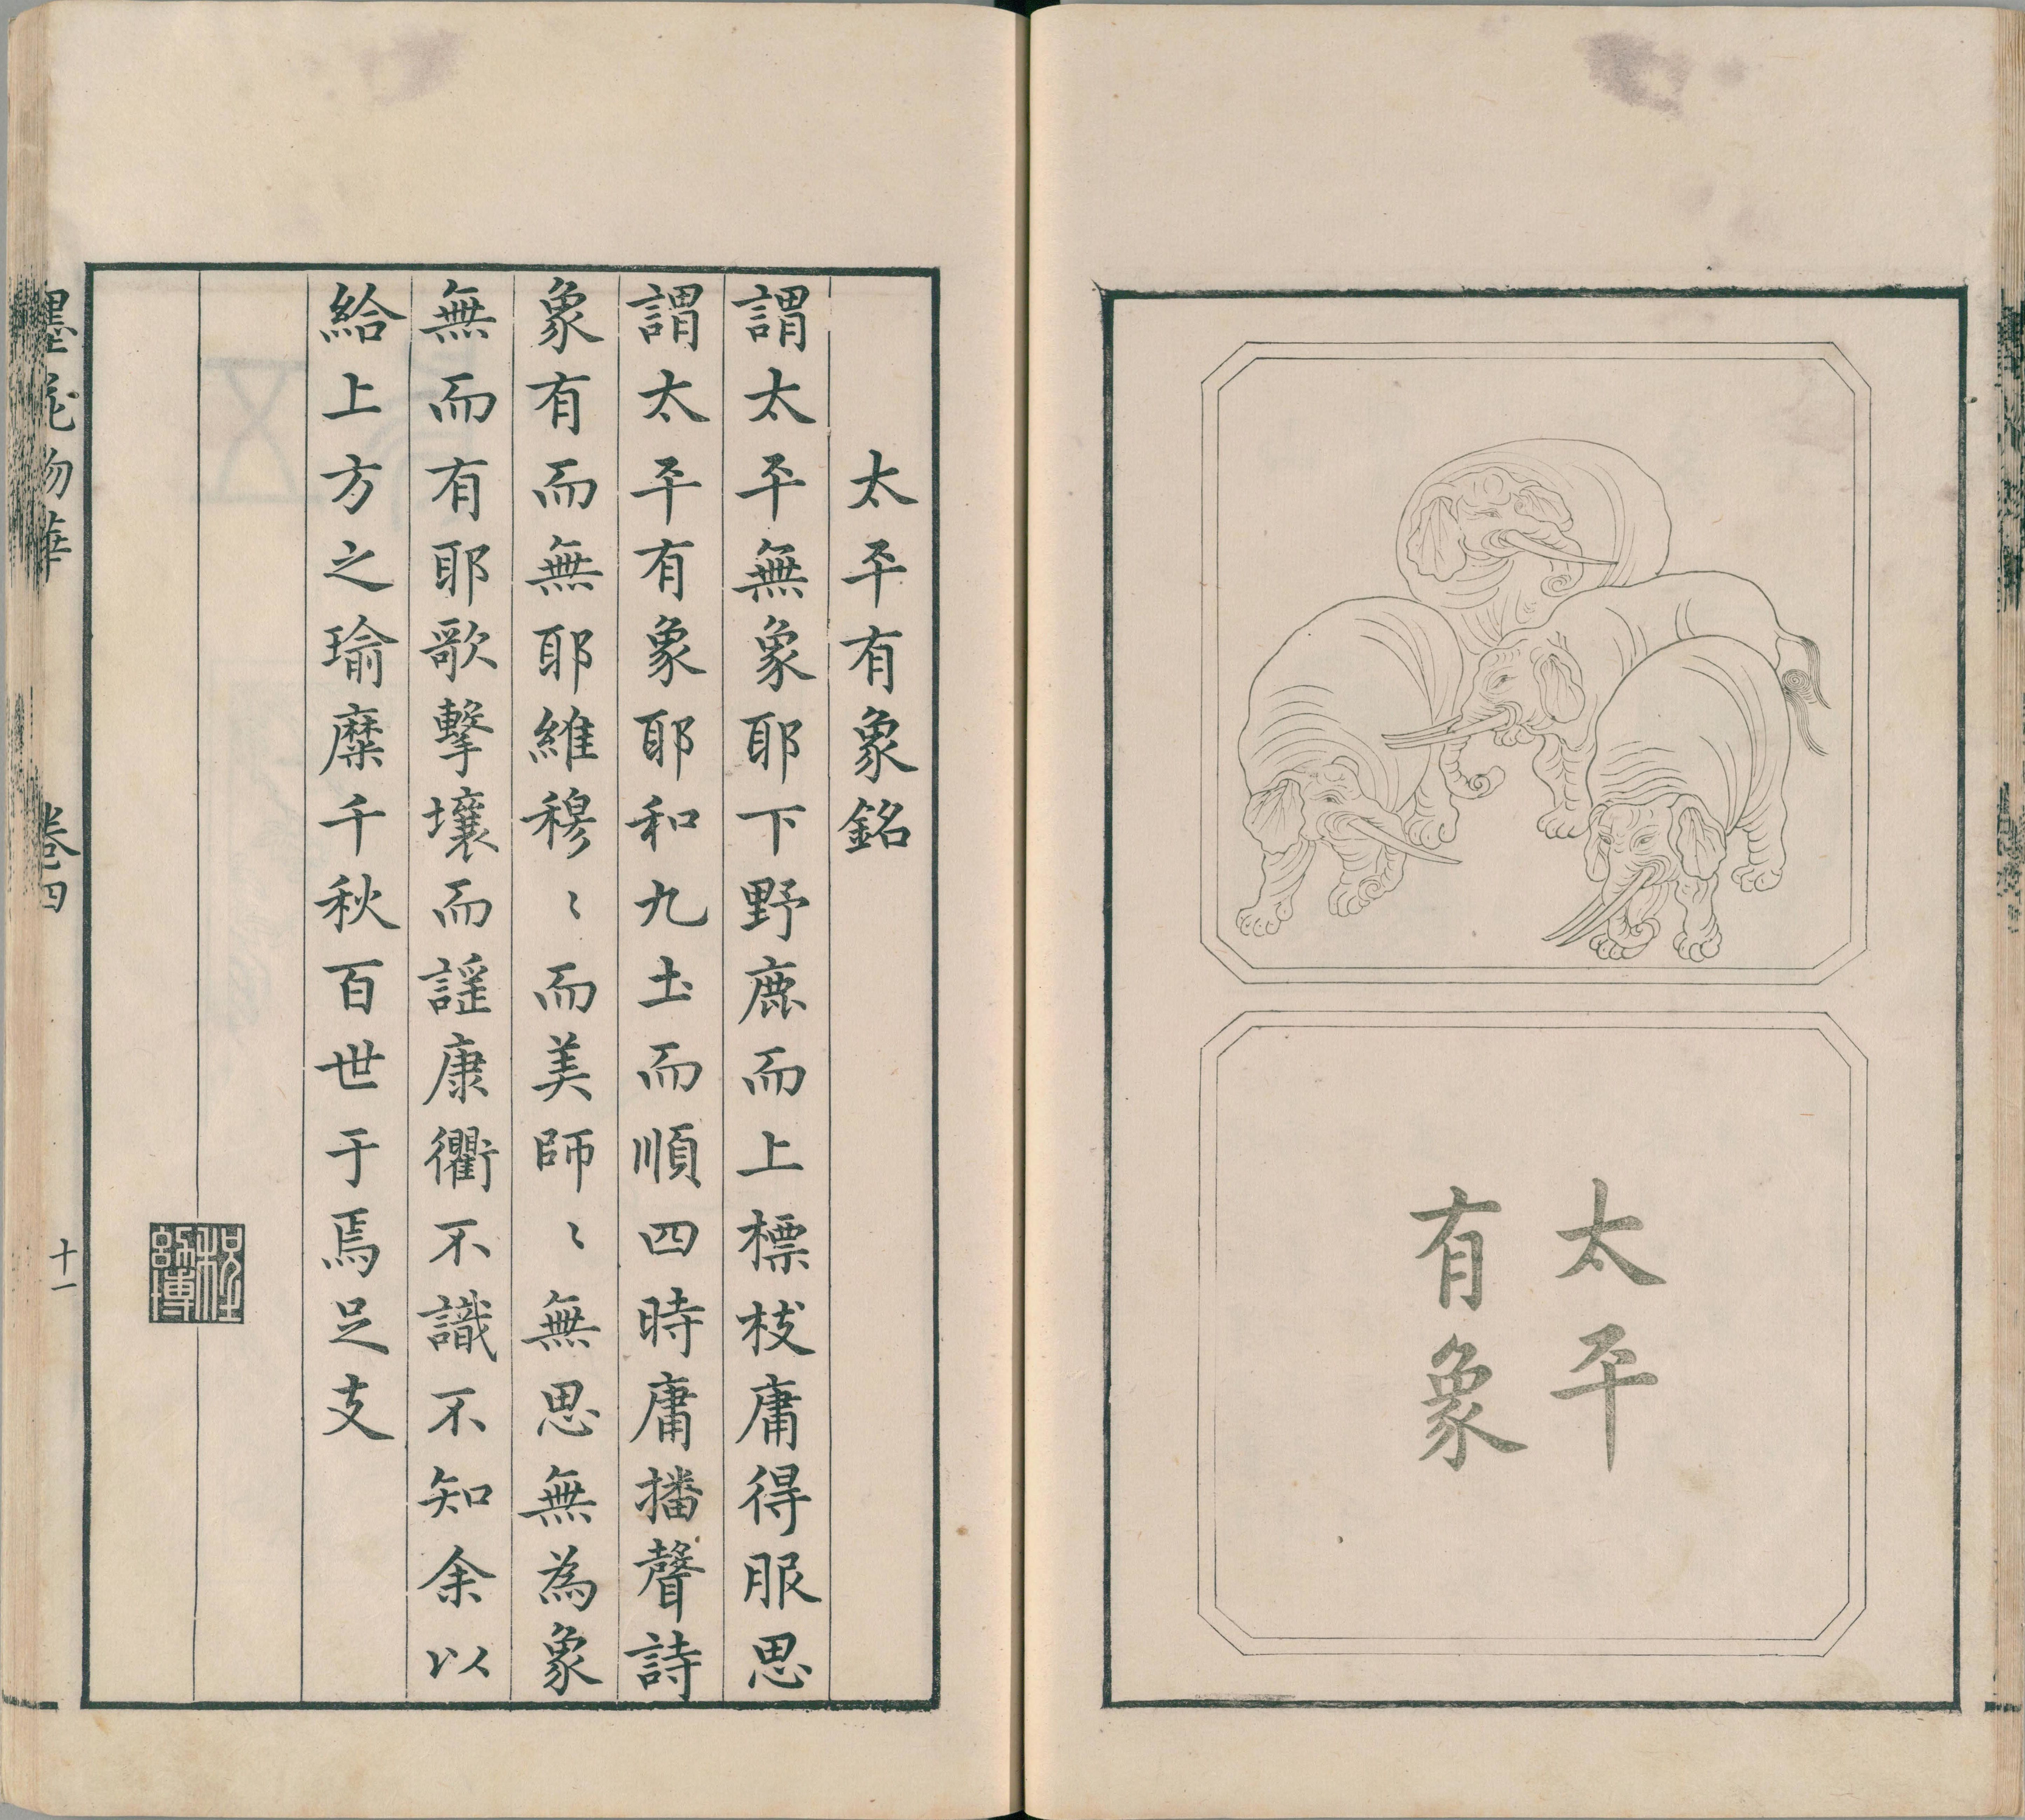 太平
有象
太平有象銘
謂太平無象耶下野鹿而上標枝庸得服思
謂太平有象耶和九圡而順四時庸播聲詩
象有而無耶維穆〻而美師〻無思無為象
無而有耶歌擊壤而謡康衢不識不知余以
給上方之瑜糜千秋百世于焉足支
卷四
十一